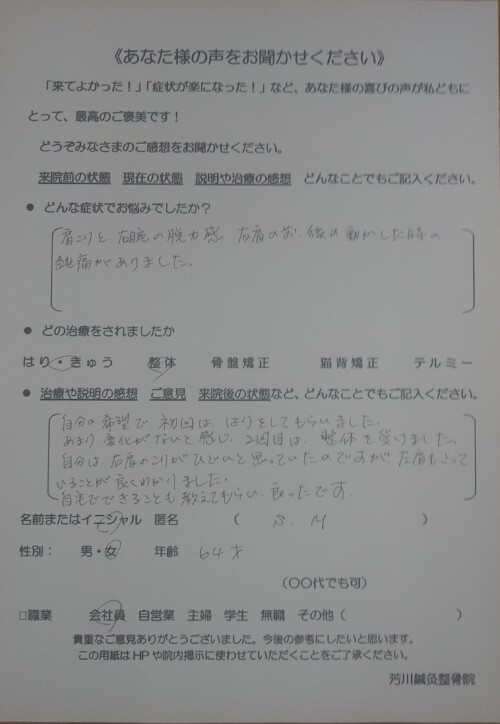 《あなた様の声をお聞かせください》
「来てよかった！」「症状が楽になった！」など、あなた様の喜びの声が私どもに
とって、最高のご褒美です！
どうぞみなさまのご感想をお聞かせください。
来院前の状態　現在の状態　説明や治療の感想　どんなことでもご記入ください。
● どんな症状でお悩みでしたか？
肩こりと、右腕の脱力感、右肩の前、後の動かした時の
鈍痛がありました。
● どの治療をされましたか
はり・きゅう　整体　骨盤矯正　猫背矯正　テルミー
● 治療や説明の感想　ご意見　来院後の状態など、どんなことでもご記入ください。
自分の希望で、初回は、はりをしてもらいました。
あまり変化がないと感じ、2回目は、整体を受けました。
自分は、右肩のこりがひどいと思っていたのですが左肩もこって
いることが良くわかりました。
自宅でできることも教えてもらい、良ったです。
名前またはイニシャル　匿名　（　S. M　）
性別：　男・女　年齢　64才
（〇〇代でも可）
□職業　会社員　自営業　主婦　学生　無職　その他（　）
貴重なご意見ありがとうございました。今後の参考にしたいと思います。
この用紙はHPや院内掲示に使わせていただくことをご了承ください。
芳川鍼灸整骨院